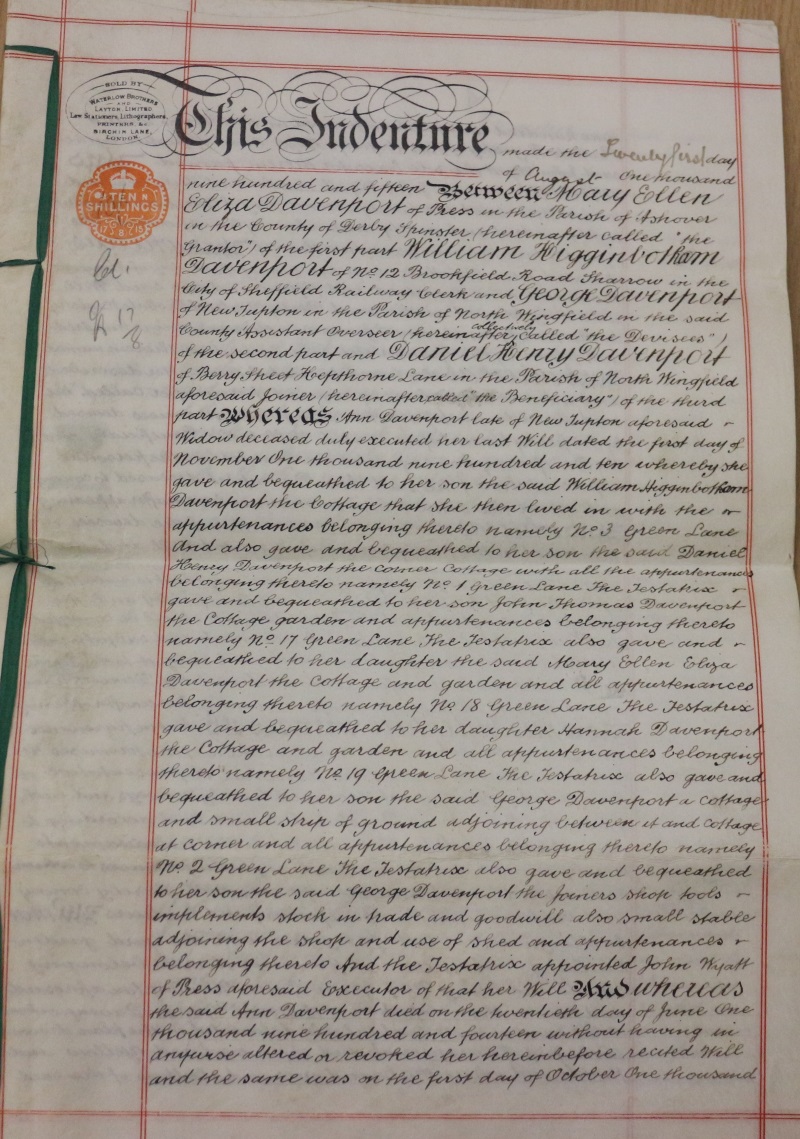 SOLD BY
WATERLOW BROTHERS
AND
LAYTON, LIMITED
Law Stationers, Lithographers,
PRINTERS, &c
BIRCHIN LANE,
LONDON.
This Indenture made the Twenty first day
of August One thousand
TEN
SHILLINGS
17 8 15
nine hundred and fifteen Between Mary Ellen
Eliza Davenport of Press in the Parish of Ashover
in the County of Derby Spinster (hereinafter called "the
Grantor") of the first part William Higginbotham
Davenport of No 12 Brookfield Road Sharrow in the
City of Sheffield Railway Clerk and George Davenport
of New Tupton in the Parish of North Wingfield in the said
County Assistant Overseer (hereinafter collectively called "the Devisees")
of the second part and Daniel Henry Davenport
17
8
of Berry Street Hepthorne Lane in the Parish of North Wingfield
aforesaid Joiner (hereinafter called "the Beneficiary") of the third
part Whereas Ann Davenport late of New Tupton aforesaid
Widow deceased duly executed her last Will dated the first day of
November One thousand nine hundred and ten whereby she
gave and bequeathed to her son the said William Higginbotham
Davenport the Cottage that she then lived in with the
appurtenances belonging thereto namely No 3 Green Lane
And also gave and bequeathed to her son the said Daniel
Henry Davenport the corner Cottage with all the appurtenances
belonging thereto namely No 1 Green Lane The Testatrix
gave and bequeathed to her son John Thomas Davenport
the Cottage garden and appurtenances belonging thereto
namely No 17 Green Lane The Testatrix also gave and
bequeathed to her daughter the said Mary Ellen Eliza
Davenport the Cottage and garden and all appurtenances
belonging thereto namely No 18 Green Lane The Testatrix
gave and bequeathed to her daughter Hannah Davenport
the Cottage and garden and all appurtenances belonging
thereto namely No 19 Green Lane The Testatrix also gave and
bequeathed to her son the said George Davenport a Cottage
and small strip of ground adjoining between it and Cottage
at corner and all appurtenances belonging thereto namely
No 2 Green Lane The Testatrix also gave and bequeathed
to her son the said George Davenport the Joiners shop tools
implements stock in trade and goodwill also small stable
adjoining the shop and use of shed and appurtenances
belonging thereto And the Testatrix appointed John Wyatt
of Press aforesaid Executor of that her Will And whereas
the said Ann Davenport died on the twentieth day of June One
thousand nine hundred and fourteen without having in
anywise altered or revoked her hereinbefore recited Will
and the same was on the first day of October One thousand